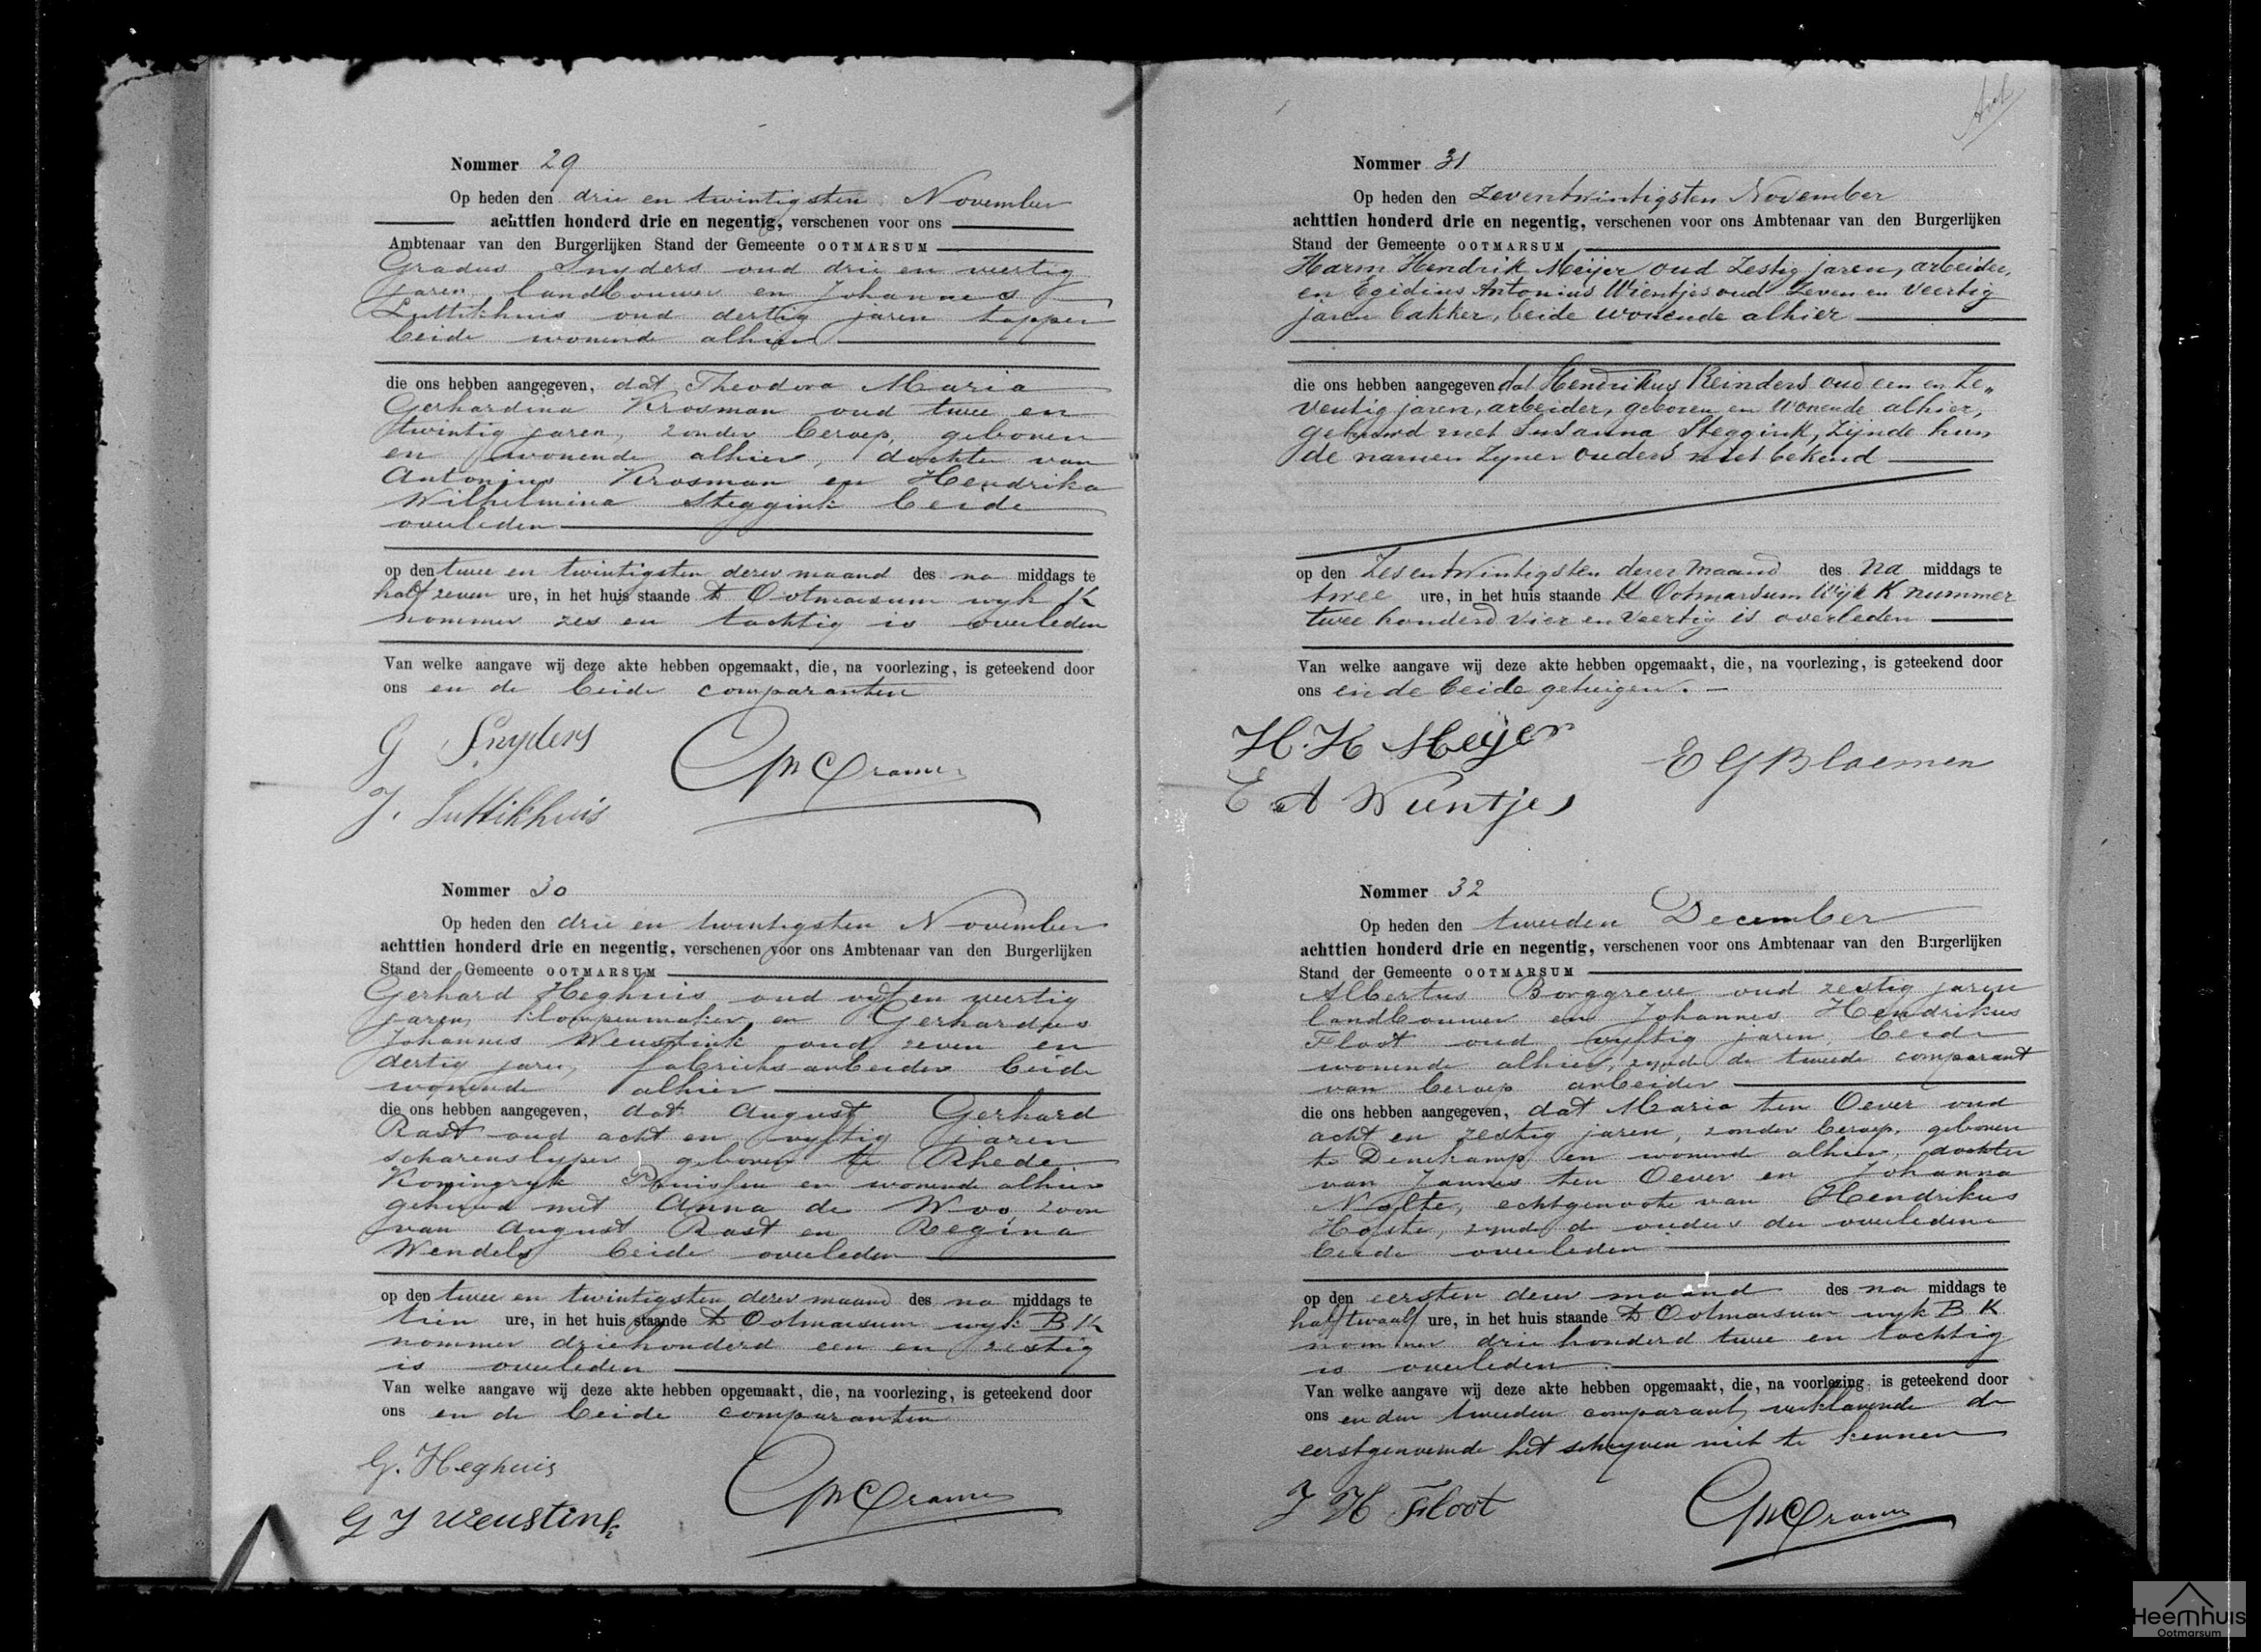 Nommer 29
Op heden den drie en twintigsten November
achttien honderd drie en negentig, verschenen voor ons
Ambtenaar van den Burgerlijken Stand der Gemeente OOTMARSUM
Gradus Snyders oud drie en veertig
jaren, landbouwer en Johannes
Luttikhuis oud dertig jaren tapper
beide wonende alhier
die ons hebben aangegeven, dat Theodora Maria
Gerhardina Krosman oud twee en
twintig jaren, zonder beroep, geboren
en wonende alhier, dochter van
Antonius Krosman en Hendrika
Wilhelmina Steggink beide
overleden
op den twee en twintigsten dezer maand des na middags te
half zeven ure, in het huis staande te Ootmarsum wyk K
nommer zes en tachtig is overleden
Van welke aangave wij deze akte hebben opgemaakt, die, na voorlezing, is geteekend door
ons en de beide comparanten
G Snyders
J. Luttikhuis
Cramer
Nommer 30
Op heden den drie en twintigsten November
achttien honderd drie en negentig, verschenen voor ons Ambtenaar van den Burgerlijken
Stand der Gemeente OOTMARSUM
Gerhard Heghuis oud vyf en veertig
jaren, klompenmaker en Gerhardus
Johannes Weustink oud zeven en
dertig jaren, fabrieks-arbeider beide
wonende alhier
die ons hebben aangegeven, dat August Gerhard
Rast oud acht en vyftig jaren
scharenslyper geboren te Rhede
Koningryk Pruissen en wonende alhier
gehuwd met Anna de Woo, zoon
van August Rast en Regina
Wendels beide overleden
op den twee en twintigsten dezer maand des na middags te
tien ure, in het huis staande te Ootmarsum wyk B K
nommer driehonderd een en zestig
is overleden
Van welke aangave wij deze akte hebben opgemaakt, die, na voorlezing, is geteekend door
ons en de beide comparanten
G. Heghuis
G J Weustink
Cramer
Nommer 31
Op heden den Zeventwintigsten November
achttien honderd drie en negentig, verschenen voor ons Ambtenaar van den Burgerlijken
Stand der Gemeente OOTMARSUM
Harm Hendrik Meijer oud Zestig jaren, arbeider,
en Egidius Antonius Wientjes oud Zeven en Veertig
jaren bakker, beide wonende alhier
die ons hebben aangegeven dat Hendrikus Reinders oud een en Ze„
ventig jaren, arbeider, geboren en Wonende alhier,
gehuwd met Susanna Steggink, Zijnde hun
de namen Zyner ouders niet bekend
op den Zesentwintigsten dezer Maand des na middags te
twee ure, in het huis staande te Ootmarsum Wijk K nummer
twee honderd Vier en Veertig is overleden
Van welke aangave wij deze akte hebben opgemaakt, die, na voorlezing, is geteekend door
ons en de beide getuigen.
H. H Meijer
E A Wientjes
E G Bloemen
Nommer 32
Op heden den tweeden December
achttien honderd drie en negentig, verschenen voor ons Ambtenaar van den Burgerlijken
Stand der Gemeente OOTMARSUM
Albertus Borggreve oud zestig jaren
landbouwer en Johannes Hendrikus
Floot oud vyftig jaren, beide
wonende alhier, zynde de tweede comparant
van beroep arbeider
die ons hebben aangegeven, dat Maria ten Oever oud
acht en zestig jaren, zonder beroep, geboren
te Denekamp en wonend alhier, dochter
van Jannes ten Oever en Johanna
Nolte, echtgenoote van Hendrikus
Hofste, zynde de ouders der overledene
beide overleden
op den eersten dezer maand des na middags te
half twaalf ure, in het huis staande te Ootmarsum wyk B K
nommer drie honderd twee en tachtig
is overleden
Van welke aangave wij deze akte hebben opgemaakt, die, na voorlezing, is geteekend door
ons en den tweeden comparant, verklarende de
eerstgenoemde het schryven niet te kennen
J H Floot
Cramer
Heemhuis
Ootmarsum